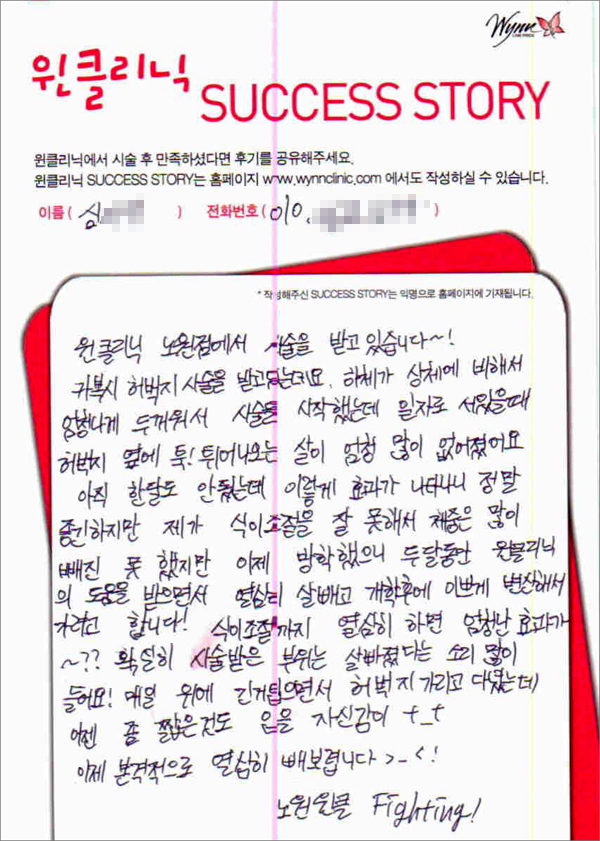 Wynn
윈클리닉 SUCCESS STORY
윈클리닉에서 시술 후 만족하셨다면 후기를 공유해주세요.
윈클리닉 SUCCESS STORY는 홈페이지 www.wynnclinic.com 에서도 작성하실 수 있습니다.
이름 ( 심 ) 전화번호 ( 010. )
* 작성해주신 SUCCESS STORY는 익명으로 홈페이지에 기재됩니다.
윈클리닉 노원점에서 시술을 받고 있습니다~!
귀족시 허벅지 시술을 받고있는데요, 하체가 상체에 비해서
엄청나게 두꺼워서 시술을 시작했는데 일자로 서있을때
허벅지 옆에 툭! 튀어나오는 살이 엄청 많이 없어졌어요
아직 한달도 안됐는데 이렇게 효과가 나타나니 정말
좋긴하지만 제가 식이조절을 잘 못해서 체중은 많이
빼진 못 했지만 이제 방학했으니 두달동안 윈클리닉
의 도움을 받으면서 열심히 살빼고 개학후에 이쁘게 변신해서
가려고 합니다! 식이조절까지 열심히 하면 엄청난 효과가
~?? 확실히 시술받은 부위는 살빠졌다는 소리 많이
들어요! 매일 위에 긴거입으면서 허벅지 가리고 다녔는데
이젠 좀 짧은것도 입을 자신감이 t_t
이제 본격적으로 열심히 빼보렵니다 >_<!
노원윈클 Fighting!